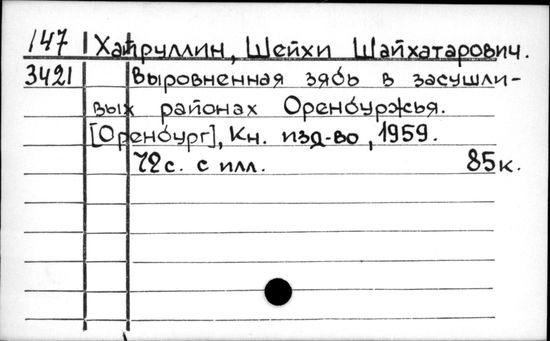 147 Хайруллин, Шейхи Шайхатарович.
3421 Выровненная зябь в засушли-
вых районах Оренбуржья.
[Оренбург], Кн. изд-во, 1959.
72 с. с илл. 85 к.